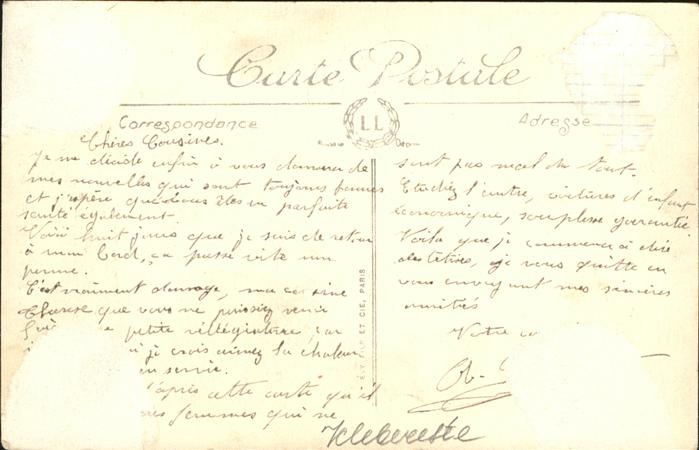 Carte Postale
Correspondance
LL
Adresse
Chères Cousines.
Je me décide enfin à vous donner de
mes nouvelles qui sont toujours bonnes
et j'espère que vous êtes en parfaite
santé également.
Voici huit jours que je suis de retour
à mon bord, ça passe vite une
perme.
C'est vraiment dommage, ma cousine
que vous ne puissiez venir
petite villégiature car
je crois aimez la chaleur
en servir.
d'après cette carte qu'il
femmes qui ne
sont pas mal du tout.
Etudiez l'autre, voitures d'enfant
économique, souplesse garantie
Voila que je commence à dire
des bêtises, je vous quitte en
vous envoyant mes sincères
amitiés
Votre
LÉVY FILS ET CIE, PARIS
Klebereste